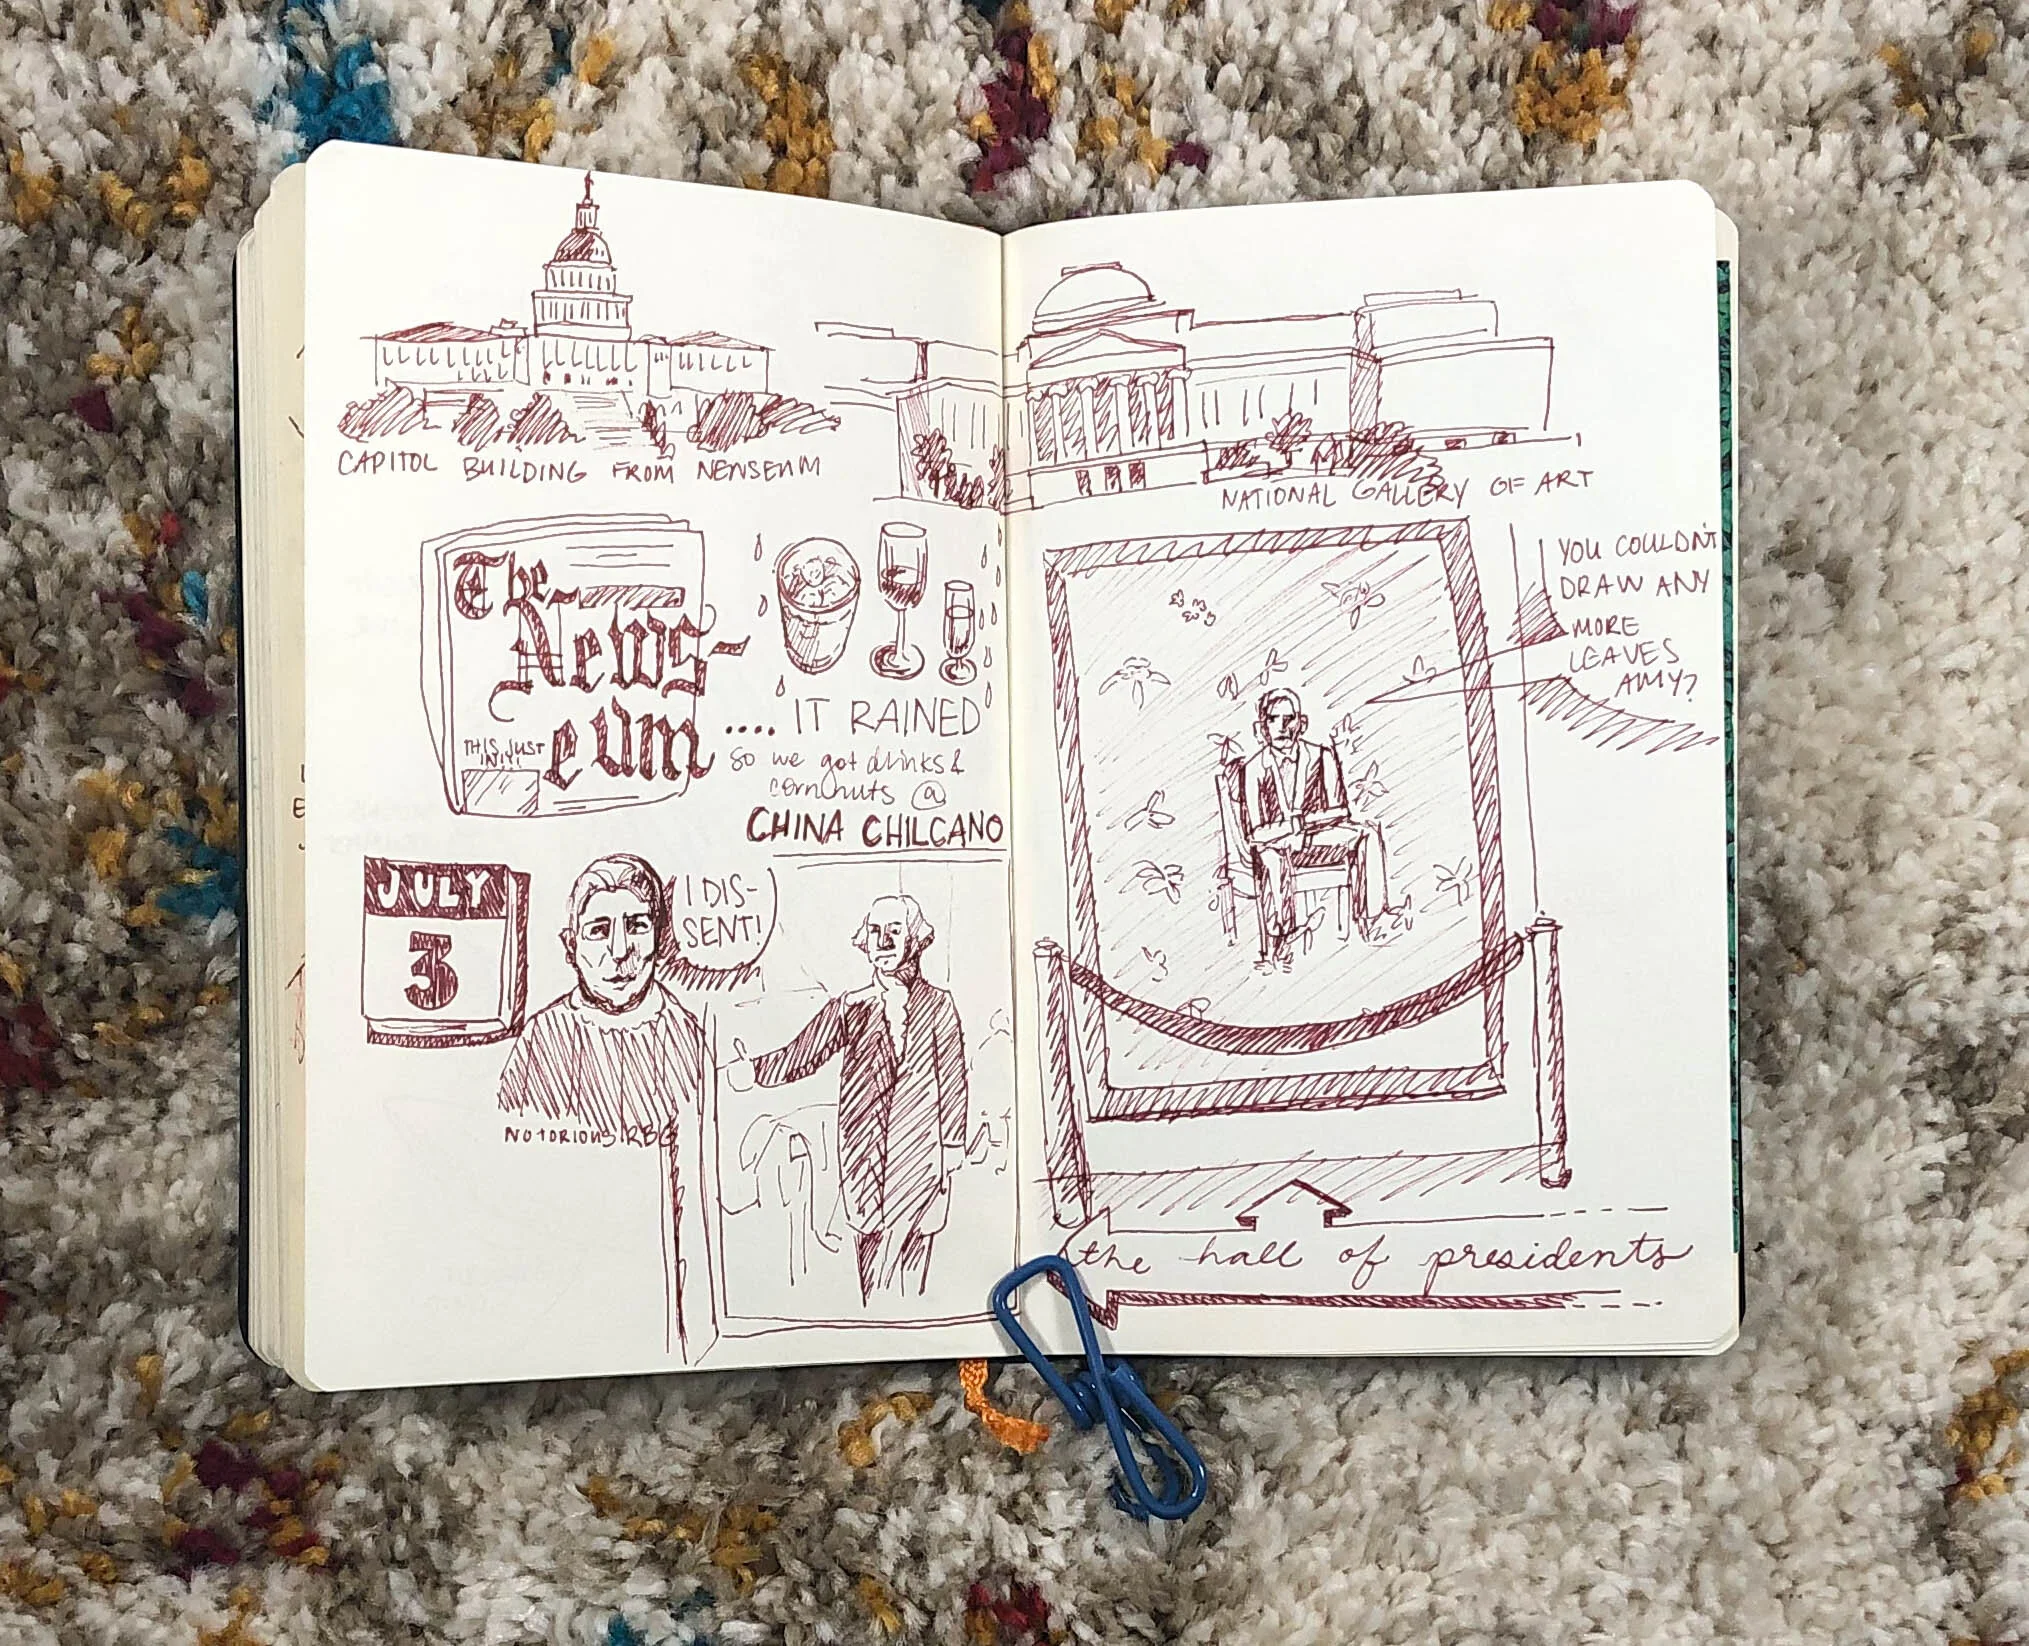 CAPITOL BUILDING FROM NEWSEUM
NATIONAL GALLERY OF ART
The
News-
eum
THIS JUST
IN!!!
.... IT RAINED
so we got drinks &
cornnuts @
CHINA CHILCANO
JULY
3
I DIS-
SENT!
NOTORIOUS RBG
YOU COULDN'T
DRAW ANY
MORE
LEAVES
AMY?
the hall of presidents